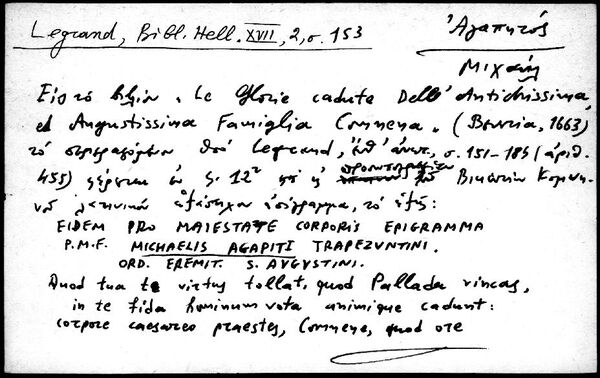 Legrand, Bibl. Hell. XVII, 2, σ. 153
Ἀγαπητός
Μιχαήλ
Εἰς τὸ βιβλίον "Le Glorie cadute Dell' Antichissima,
ed Augustissima Famiglia Comnena" (Βενετία, 1663)
τὸ περιγραφόμενον ὑπὸ Legrand, ἔνθ' ἀνωτ., σ. 151-184 (ἀριθ.
455) φέρεται ἐν φ. 12 καὶ ἡ προσωπογραφία τοῦ Βικεντίου Κομνη-
νοῦ λατινικὸν ἑξάστιχον ἐπίγραμμα, τὸ ἑξῆς:
EIDEM PRO MAIESTATE CORPORIS EPIGRAMMA
P.M.F. MICHAELIS AGAPITI TRAPEZVNTINI.
ORD. EREMIT. S. AVGVSTINI.
Quod tua te virtus tollat, quod Pallada vincas,
in te fida hominum vota animique cadunt:
corpore caesareo praestes, Comnene, quod ore